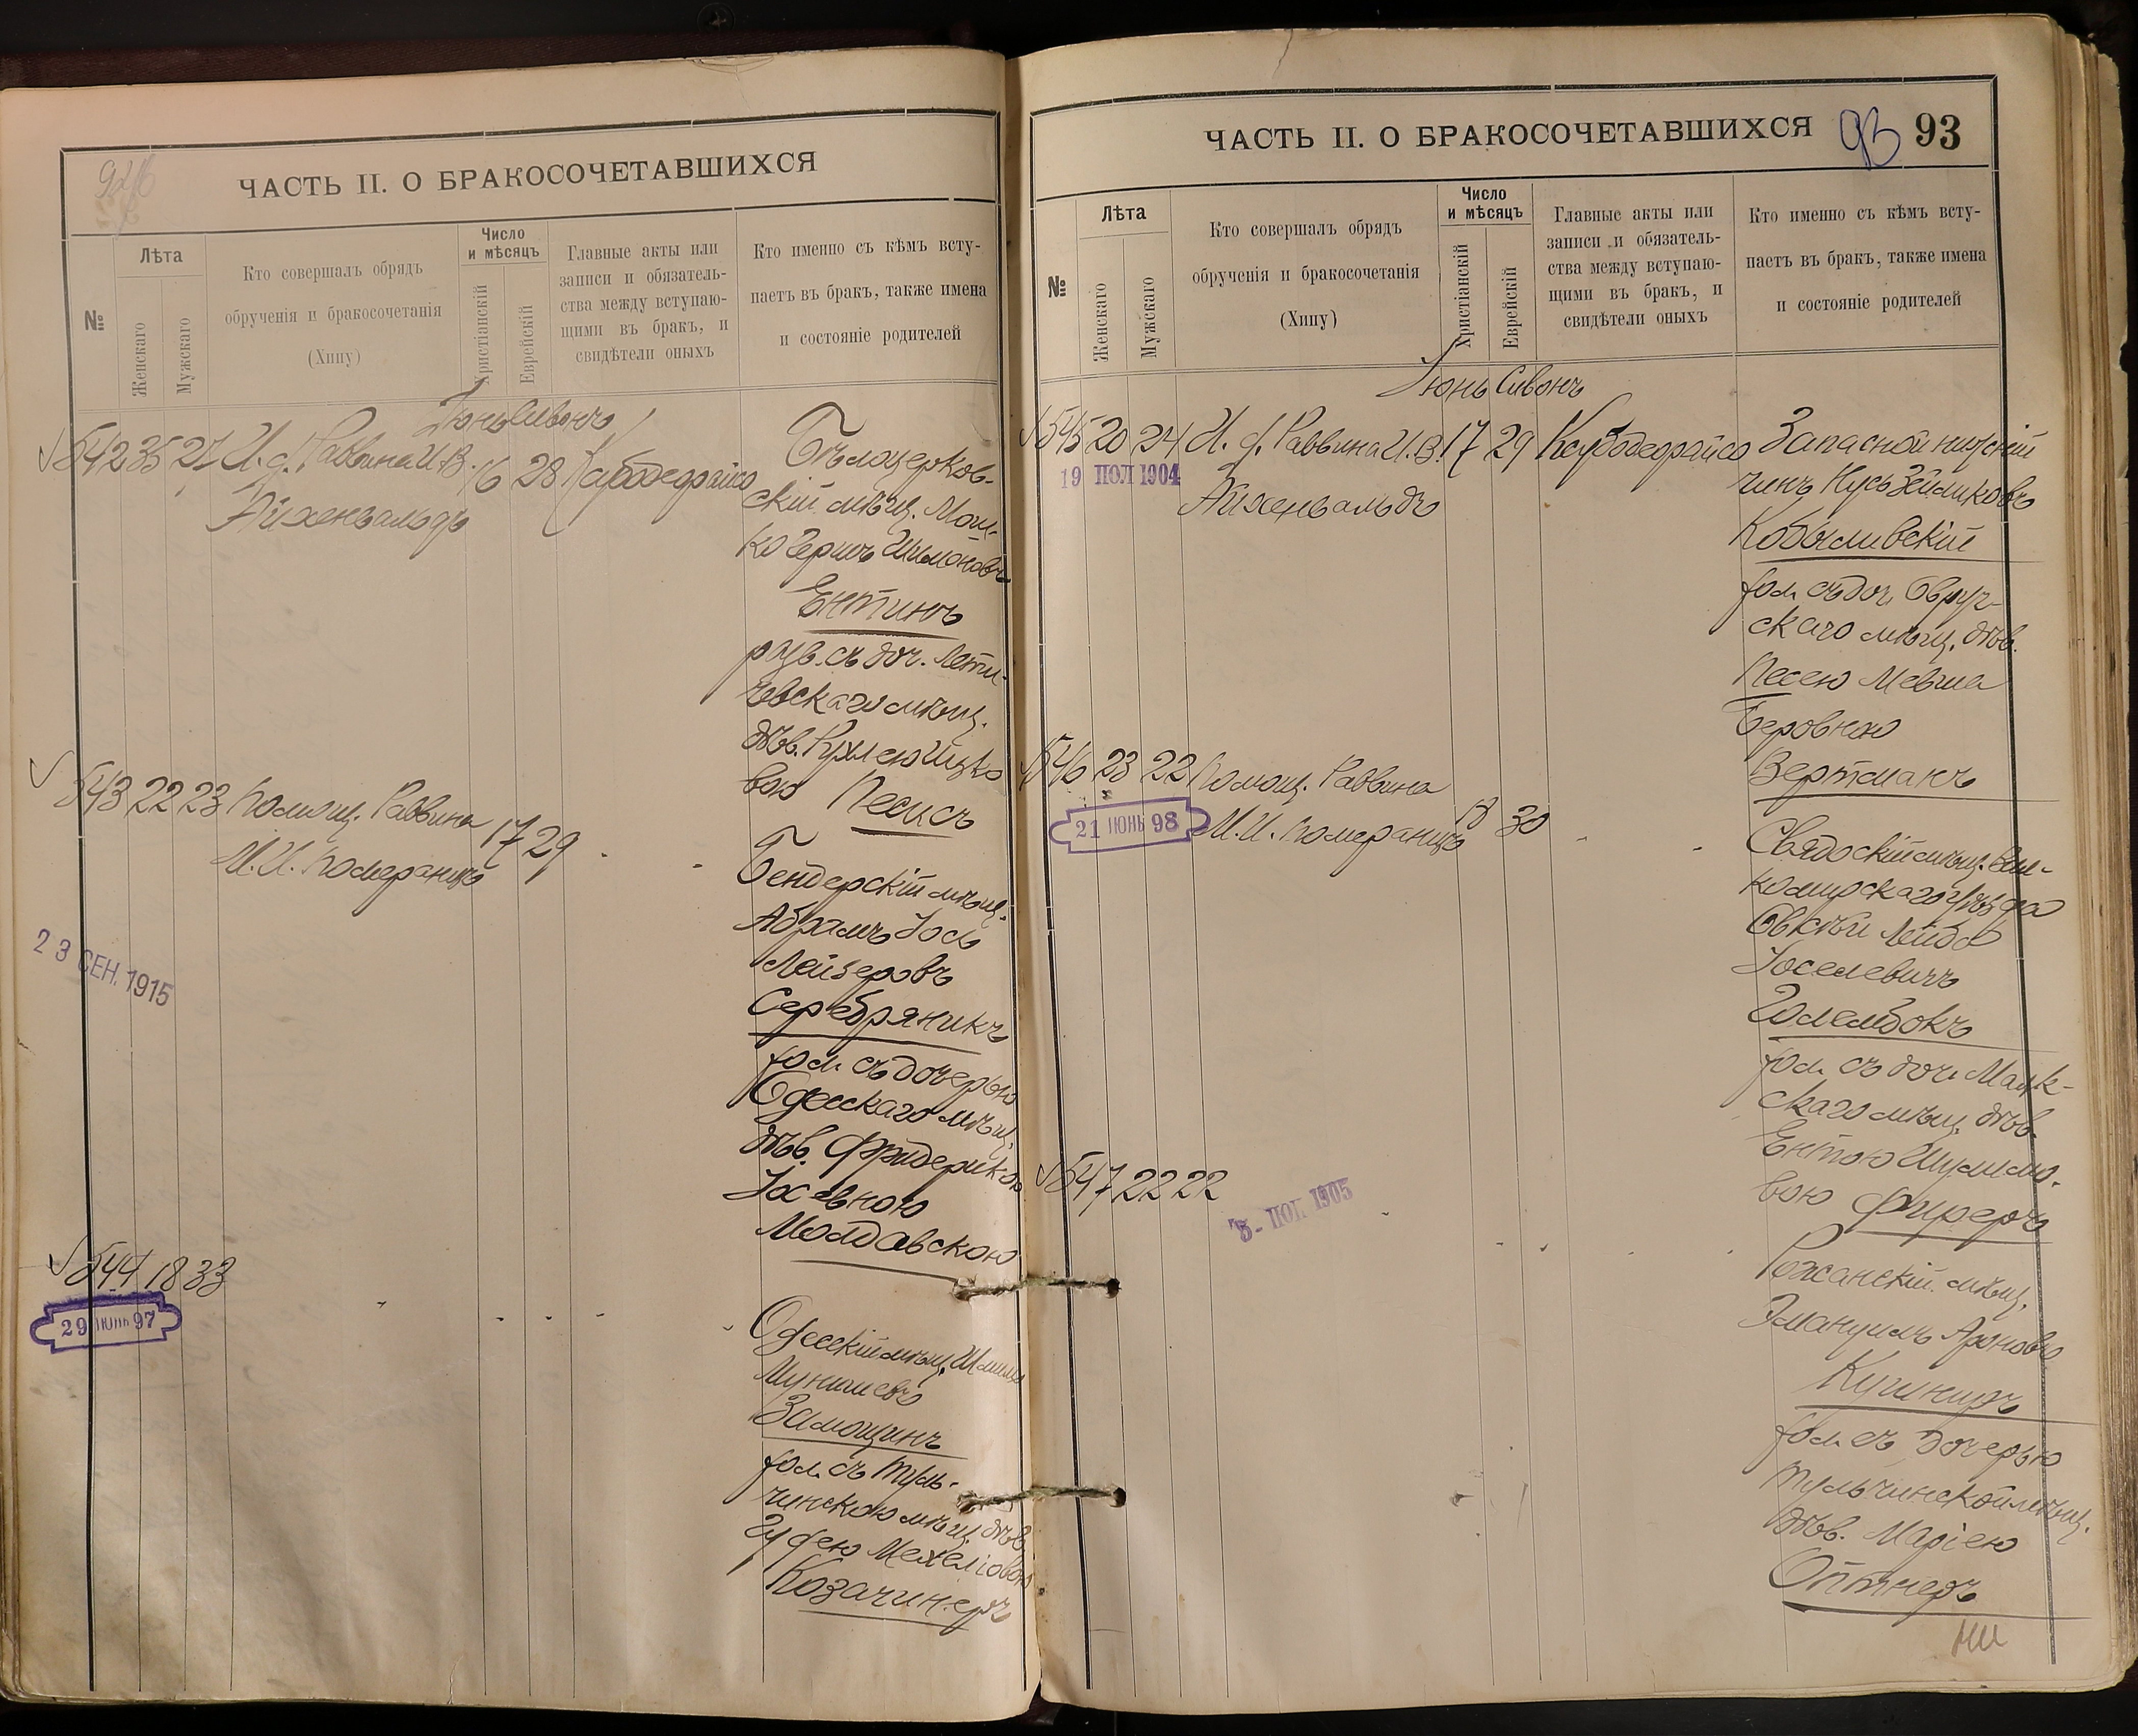 ЧАСТЬ II. О БРАКОСОЧЕТАВШИХСЯ
№
Лѣта
Женскаго
Мужскаго
Кто совершалъ обрядъ
обрученія и бракосочетанія
(Хипу)
Число
и мѣсяцъ
Христіанскій
Еврейскій
Главные акты или
записи и обязатель-
ства между вступаю-
щими въ бракъ, и
свидѣтели оныхъ
Кто именно съ кѣмъ всту-
паетъ въ бракъ, также имена
и состояніе родителей
Іюнь Сивонъ
542 35 27 И. д. Раввина И.В. 16 28
Айхенвальдъ
Бѣлоцерков-
скій мѣщ. Мош-
ко Гершъ Шимоновъ
Ентинъ
разв. съ доч. Лети-
чевскаго мѣщ.
дѣв. Рухлею Ицко
вою Песисъ
543 22 23 Помощ. Раввина 17 29
И. И. Померанцъ
23 СЕН. 1915
Бендерскій мѣщ.
Абрамъ Іось
Лейзеровъ
Серебряникъ
хол. съ дочерью
Одесскаго мѣщ.
дѣв. Фридерикою
Іосевною
Молдавскою
544 18 33
29 ІЮНЬ 97
Одесскій мѣщ.
Мунишевъ
Замощинъ
хол. съ Туль-
чинскою мѣщ. дѣв.
Гудею Мехелiовою
Козачинеръ
ЧАСТЬ II. О БРАКОСОЧЕТАВШИХСЯ 93 93
№
Лѣта
Женскаго
Мужскаго
Кто совершалъ обрядъ
обрученія и бракосочетанія
(Хипу)
Число
и мѣсяцъ
Христіанскій
Еврейскій
Главные акты или
записи и обязатель-
ства между вступаю-
щими въ бракъ, и
свидѣтели оныхъ
Кто именно съ кѣмъ всту-
паетъ въ бракъ, также имена
и состояніе родителей
Іюнь Сивонъ
545 20 24 И. д. Раввина И.В. 17 29
19 ІЮЛ 1904
Айхенвальдъ
Запасной нижній
чинъ Кусь Зейликовъ
Кобыливскій
хол. съ доч. Овруч-
скаго мѣщ. дѣв.
Песею Мевша
Беровною
Вертманъ
546 23 22 Помощ. Раввина 18 30
21 ІЮНЬ 98
И. И. Померанцъ
Свядоскій мѣщ. Вил-
комирскаго уѣзда
Овсѣй Лейба
Іоселевичъ
Голембокъ
хол. съ доч. Маяк-
скаго мѣщ. дѣв.
Ентою Шулимо-
вою Фуреръ
547 22 22
1905
Рожанскій мѣщ.
Эмануилъ Ароновъ
Кушниръ
хол. съ дочерью
Тульчинской мѣщ.
дѣв. Маріею
Оптнеръ